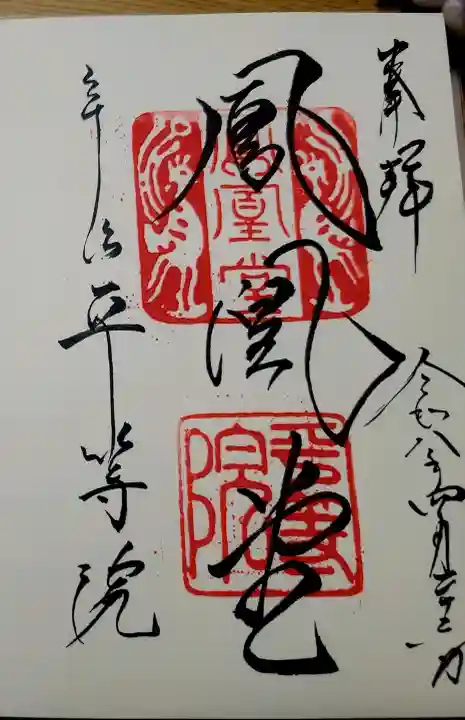 奉拝
令和八年四月 日
鳳凰堂
宇治 平等院
鳳凰堂
平等院